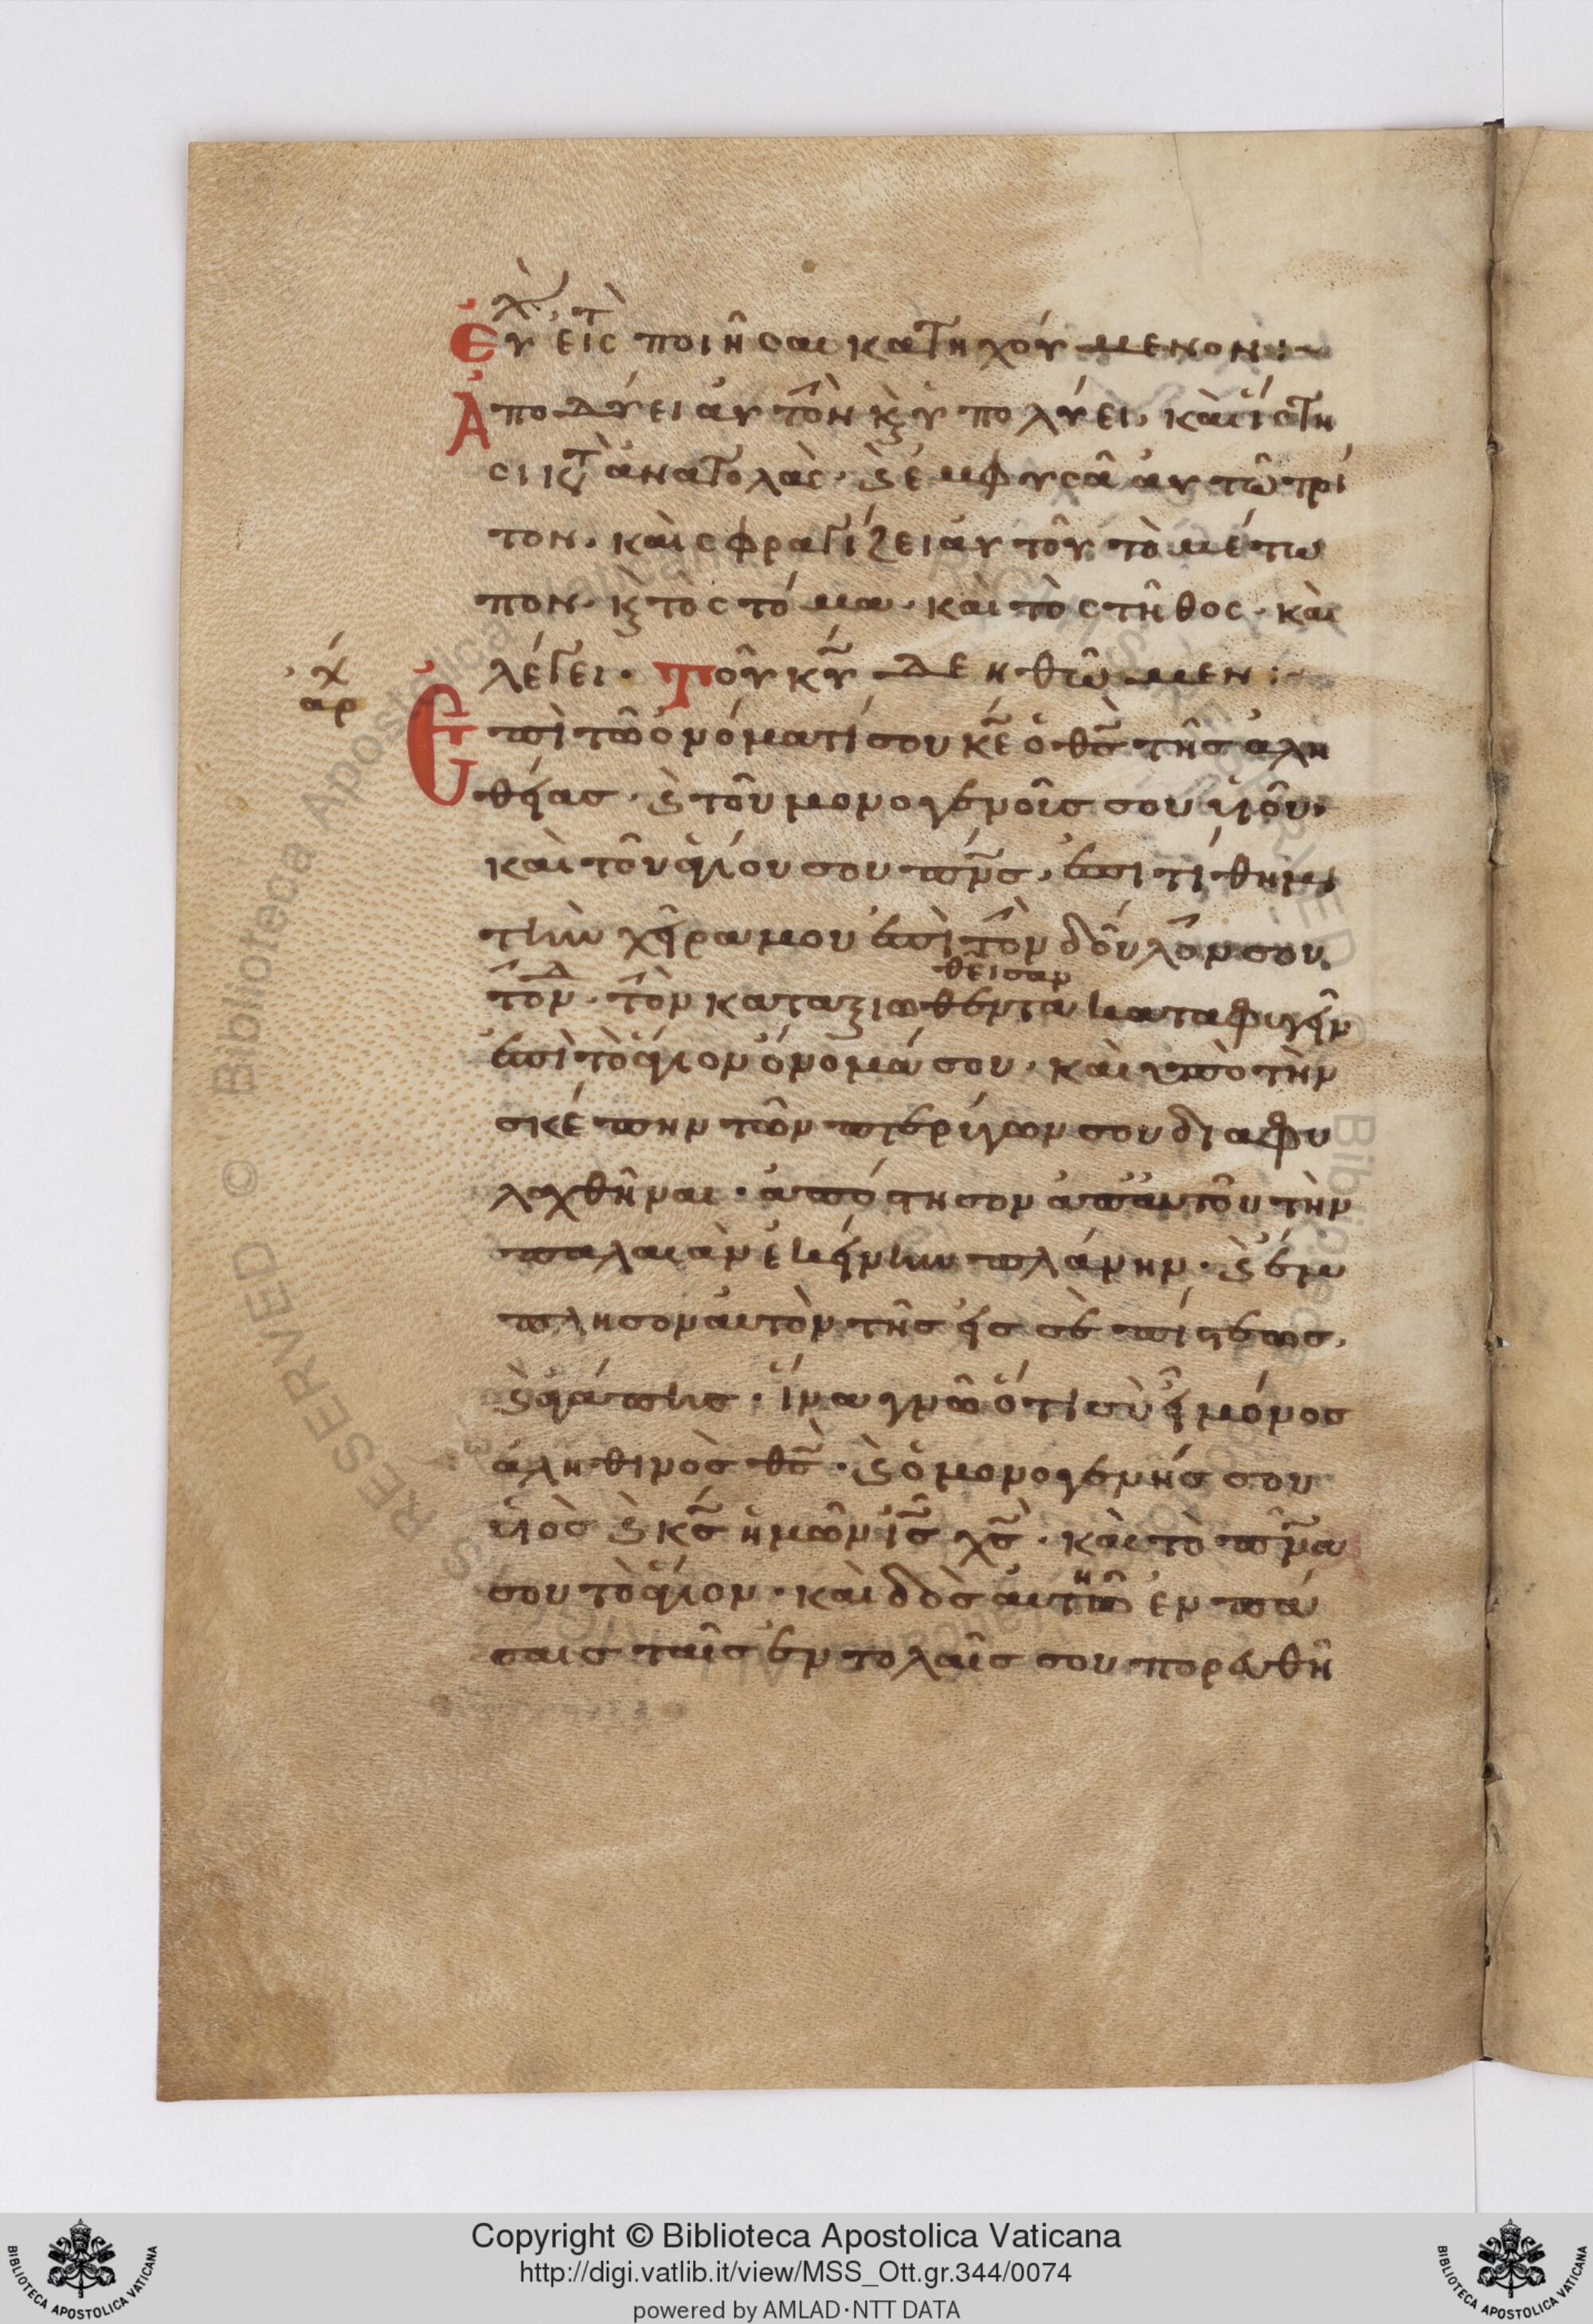 Εὐχ(ὴ) εἰς τὸ ποιῆσαι κατηχούμενον:~
Ἀποδύει αὐτὸν κ(αὶ) ὑπολύει· καὶ ἵστη
σι κ(α)τ(ὰ) ἀνατολὰς· κ(αὶ) ἐμφυσᾶ αὐτῶ τρί
τον· καὶ σφραγίζει αὐτοῦ τὸ μέτω
πον· κ(αὶ) τὸ στόμα· καὶ τὸ στῆθος· καὶ
λέγει· Τοῦ κ̅υ̅ δεηθῶμεν:~
Ἐπὶ τῶ ὀνόματί σου κ̅ε̅ ὁ θ̅ς̅ τῆς ἀλη
θείας· κ(αὶ) τοῦ μονογενοῦς σου υἱοῦ·
καὶ τοῦ ἁγίου σου π̅ν̅ς̅· ἐπιτίθημι
τὴν χεῖρα μου ἐπὶ τὸν δοῦλόν σου
τόνδ(ε)· τὸν καταξιωθέντα καταφυγεῖν
θεῖσαν
ἐπὶ τὸ ἅγιον ὄνομά σου· καὶ ὑπὸ τὴν
σκέπην τῶν πτερύγων σου διαφυ
λαχθῆναι· ἀπόστησον ἀπ' αὐτοῦ τὴν
παλαιὰν ἐκείνην πλάνην· κ(αὶ) ἔμ
πλησον αὐτὸν τῆς εἰς σὲ πίστεως·
κ(αὶ) ἀγάπης· ἵνα γνῶ ὅτι σὺ εἶ μόνος
ἀληθινὸς θ̅ς̅· κ(αὶ) ὁ μονογενής σου
υἱὸς κ(αὶ) κ̅ς̅ ἡμῶν ἰ̅ς̅ χ̅ς̅· καὶ τὸ π̅ν̅α̅
σου τὸ ἅγιον· καὶ δὸς αὐτῶ ἐν πά
σαις ταῖς ἐντολαῖς σου πορευθῆ
Copyright © Biblioteca Apostolica Vaticana
http://digi.vatlib.it/view/MSS_Ott.gr.344/0074
powered by AMLAD·NTT DATA